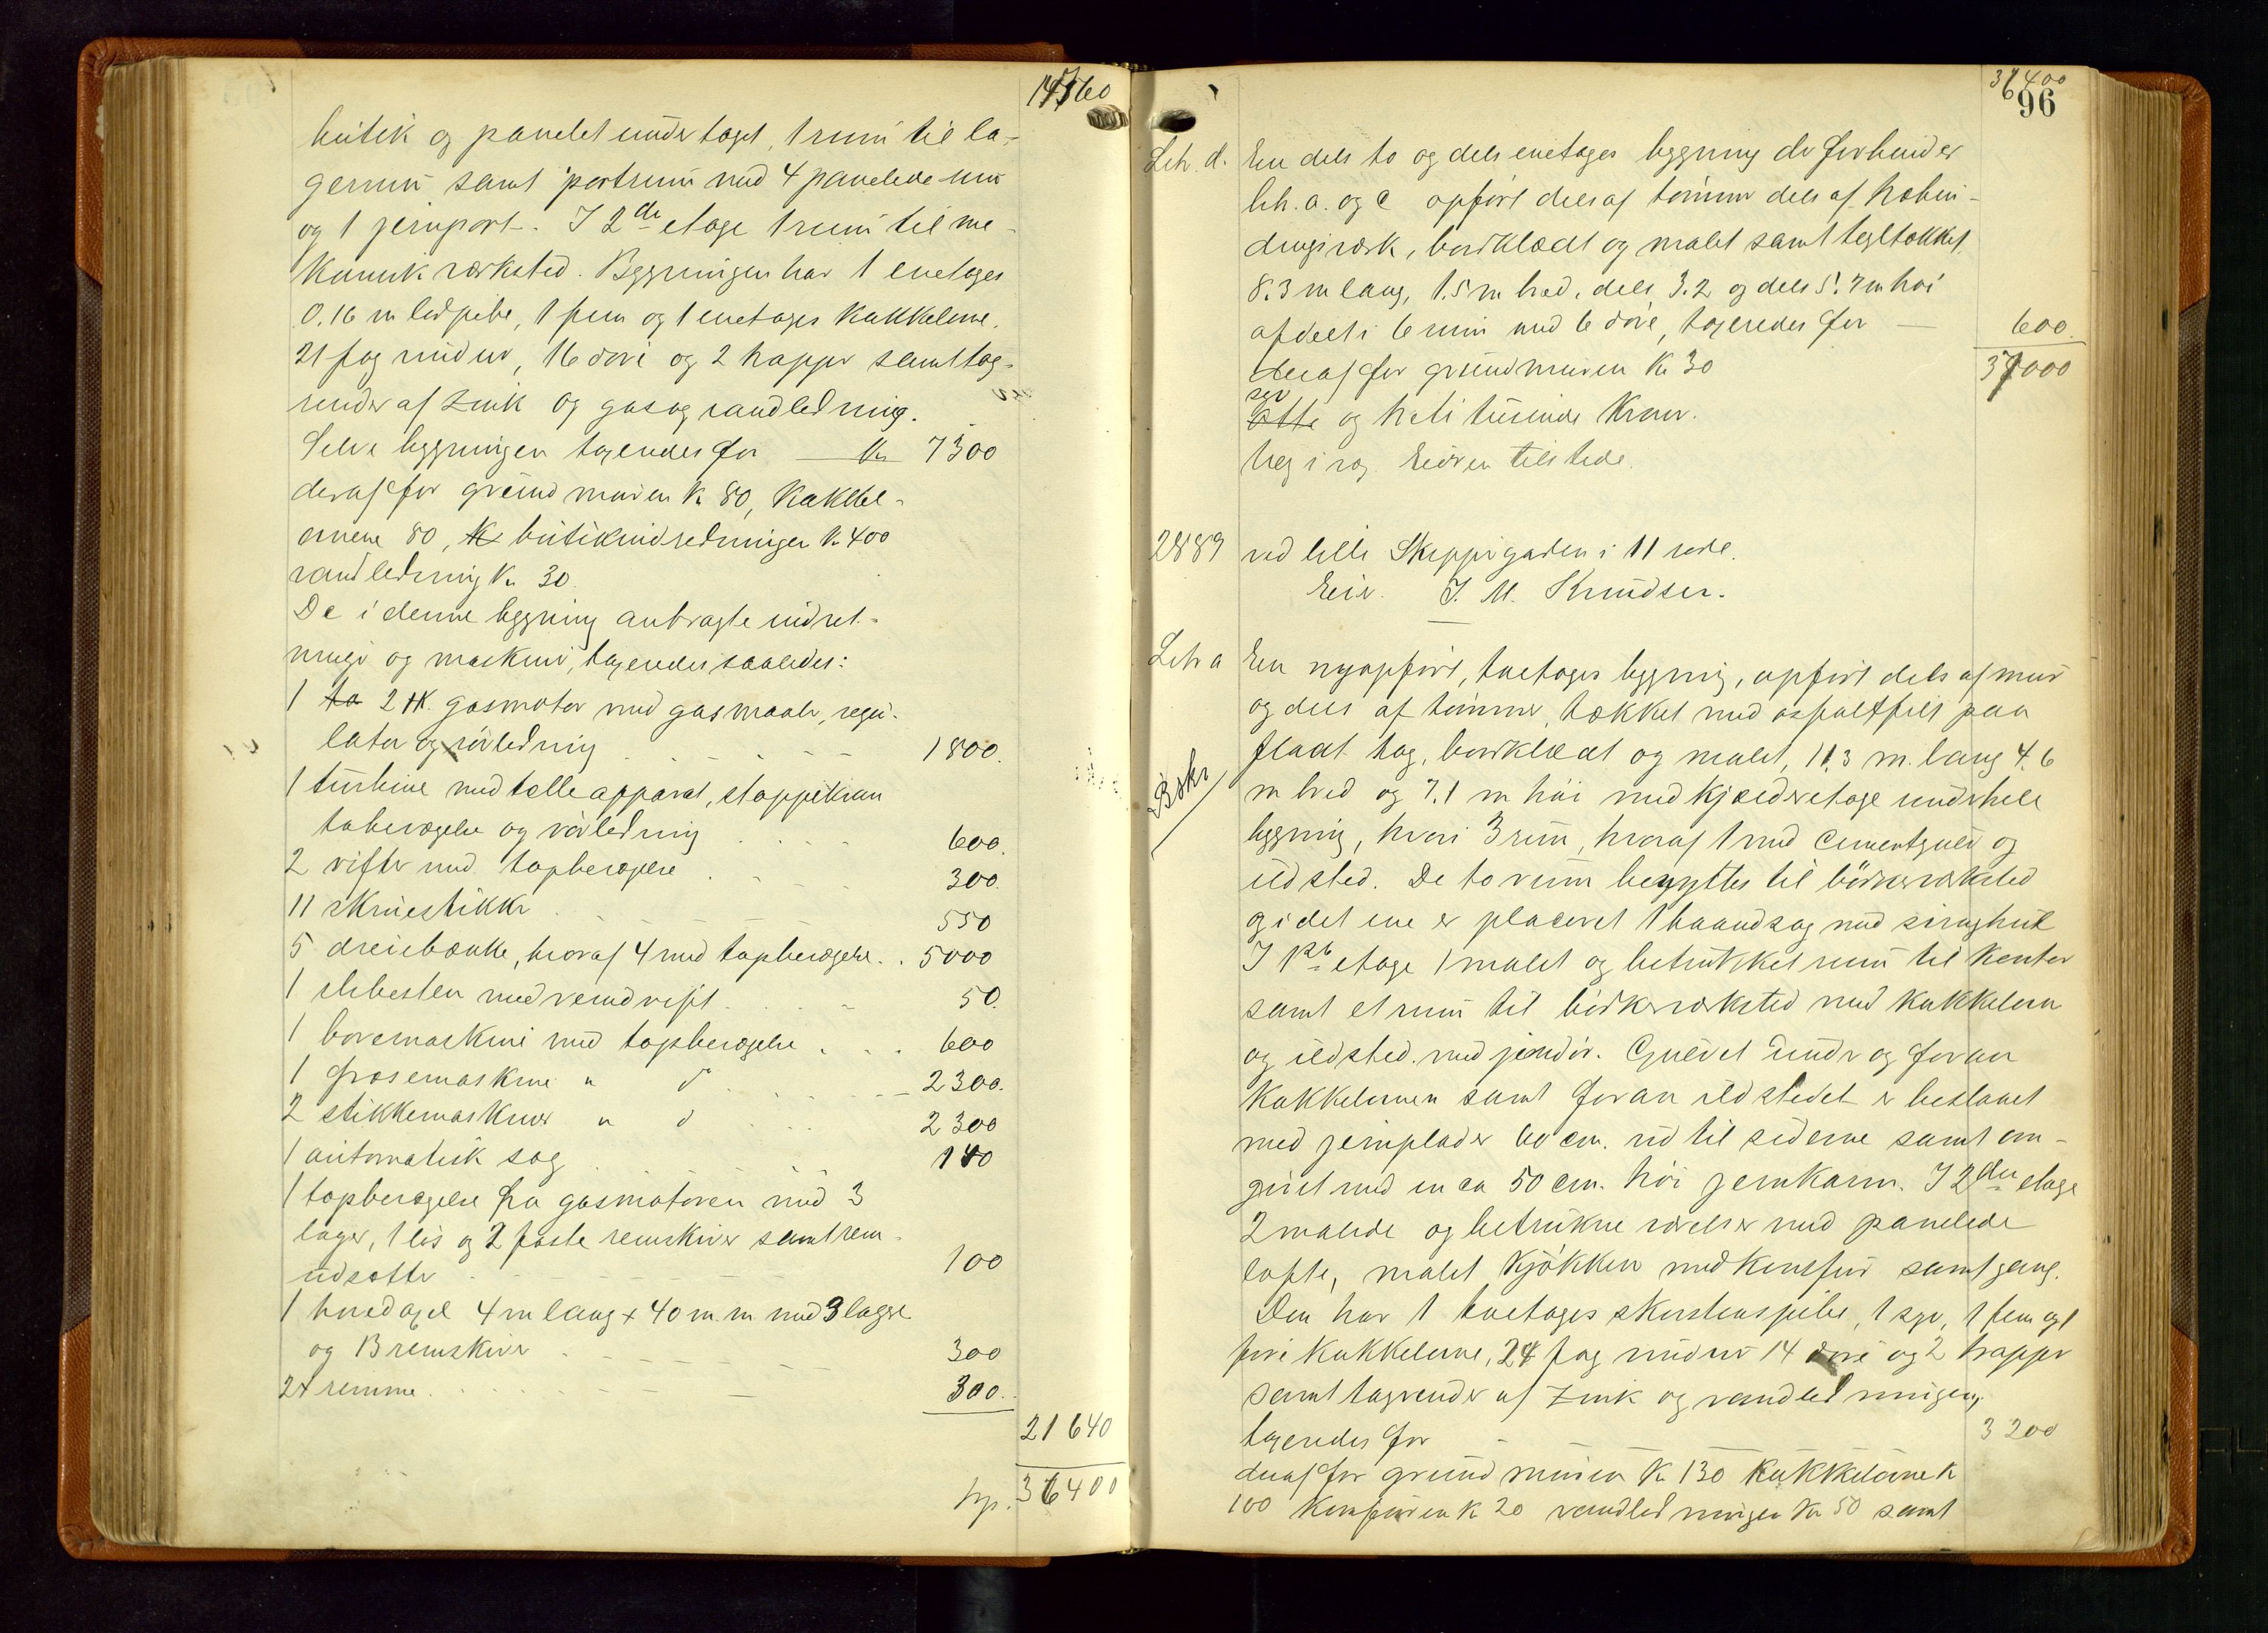 14760
butik og panelet under taget, 1 rum til la-
gerrum samt portrum med 4 panelede
og 1 jernport. I 2de etage 1 rum til me-
kanisk værksted. Bygningen har 1 enetages
0.16 m lødpibe, 1 fem og 1 enetages kakkelovne,
21 fag vinduer, 16 døre og 2 trapper samt tag-
render af zink og gas og vandledning.
Selve bygningen taxeredes for — Kr 7300
deraf for grundmuren kr 80, Kakkel-
ovnene 80, butikindredninger kr 400
vandledning kr 30.
De i denne bygning anbragte indret-
ninger og maskiner, taxeredes saaledes:
1 2 HK. gasmotor med gasmaaler, regu-
lator og rørledning 1800.
1 turbine med tælleapparat, stoppekran
tabevægelse og rørledning 600.
2 vifter med topbevægelse 300.
11 skruestikker 550
5 dreiebænke, hvoraf 4 med topbevægelse . . 5000
1 slibesten med vandvift 50.
1 boremaskine med topbevægelse . . . 600
1 fræsemaskine " do 2300.
2 stikkemaskiner " do 2300
1 automatisk sag 140
1 topbevægelse fra gasmotoren med 3
lager, 1 løs og 2 faste remskiver samt rem-
udsætter 100
1 hovedaxel 4 m lang x 40 m.m med 3 lagere
og 13 remskiver 300
24 remme 300.
21640
trp. 36400
36400
96
Litr. d. En dels to og dels enetages bygning der forbinder
litr. a. og c opført dels af tømmer dels af træbin-
dingsværk, bordklædt og malet samt tegltækket
8.3 m lang, 1.5 m bred, dels 3.2 og dels 5.7 m høi
afdelt i 6 rum med 6 døre, taxeredes for — 600.
deraf for grundmuren kr 30 37000
syv
otte og treti tusinde kroner.
træg i væg. Eieren tilstede.
2889 ved lille Skippergaden i 11 rode.
Eier. J. M. Knudsen.
Litr a En nyopført, toetages bygning, opført dels af mur
og dels af tømmer, tækket med asfaltfilt paa
fladt tag, bordklædt og malet, 11.3 m. lang 4.6
m bred og 7.1 m høi med kjælderetage under hele
Bøkr
bygning, hvori 3 rum, hvoraf 1 med cementgulv og
ildsted. De to rum benyttes til bødkerværksted
og i det ene er placeret 1 baandsag med svinghjul
I 1ste etage 1 malet og betrukket rum til kontor
samt et rum til bødkerværksted med kakkelovn
og ildsted med jerndør. Gulvet under og foran
kakkelovnen samt foran ildstedet er beslaaet
med jernplader 60 cm. ud til siderne samt om-
givet med en ca 50 cm. høi jernkarm. I 2den etage
2 malede og betrukne værelser med panelede
lofte, malet kjøkken med komfur samt gang.
Den har 1 toetages skorstenspibe, 1 syv, 1 fem og 1
fire kakkelovne, 24 fag vinduer 14 døre og 2 trapper
samt tagrender af zink og vandledningen,
taxeredes for 3200
deraf for grundmuren kr 130 kakkelovne kr
100 komfuren kr 20 vandledningen kr 50 samt